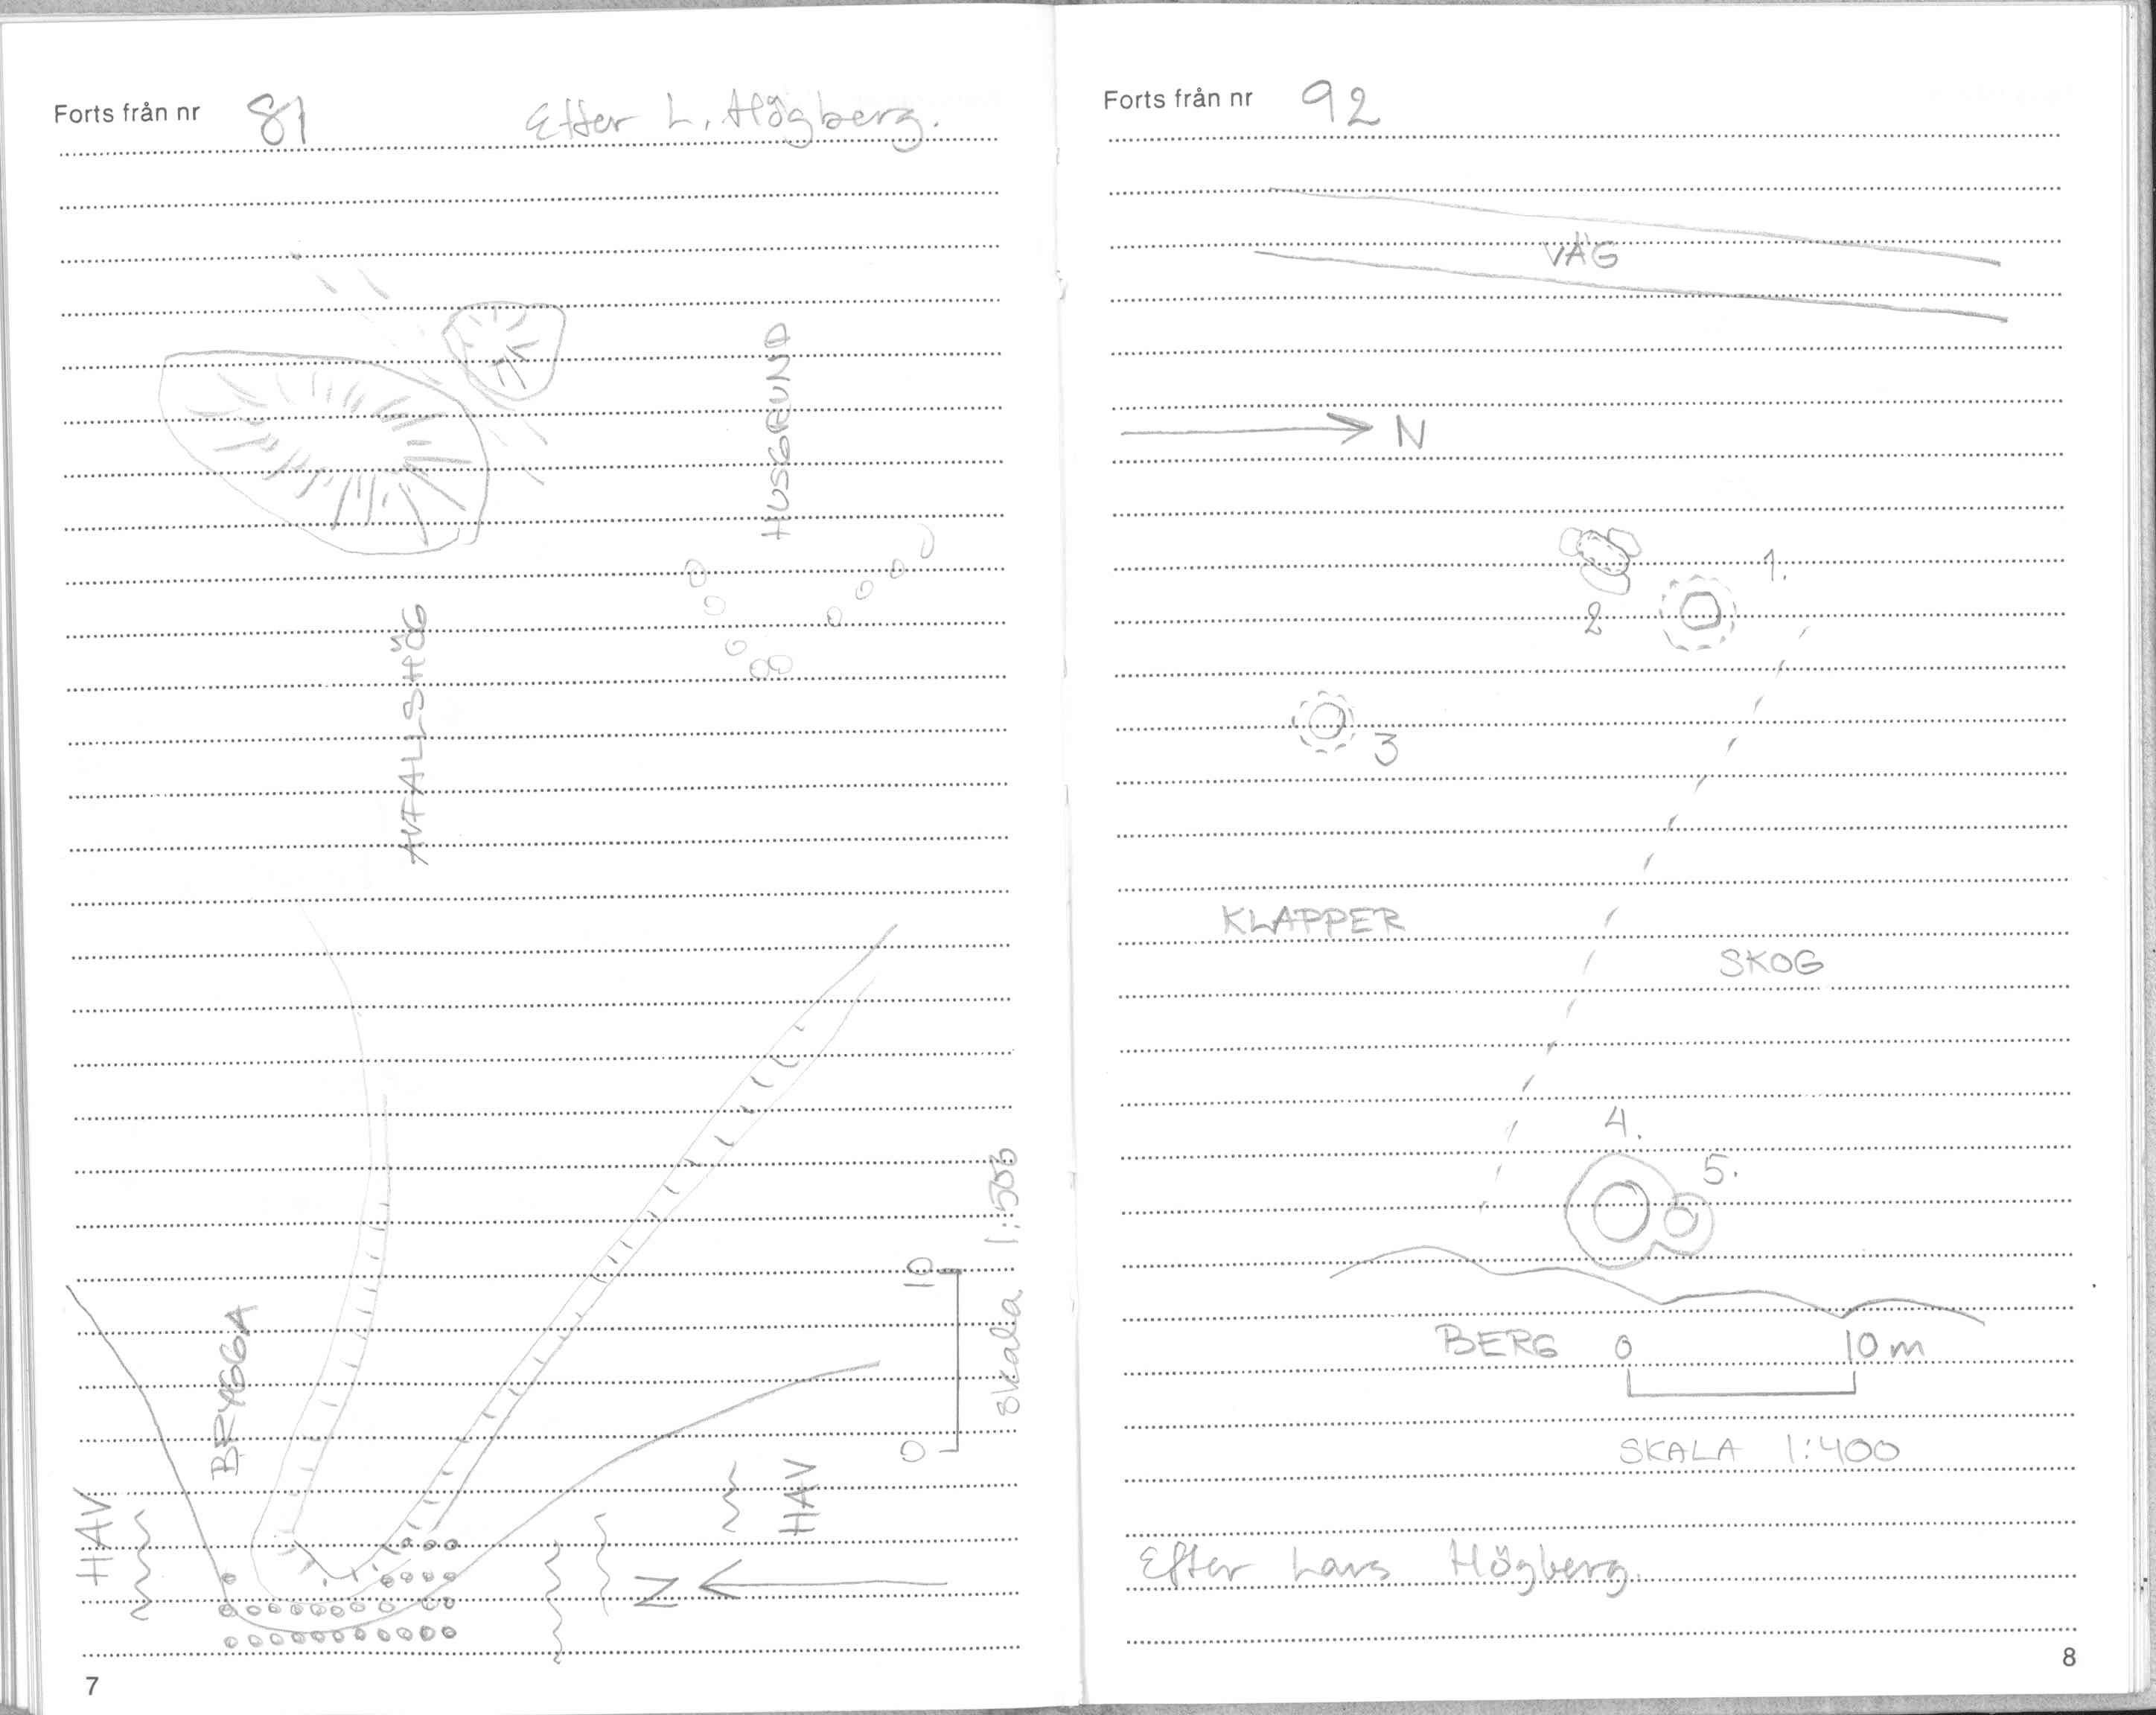 Forts från nr 81 Efter L. Högberg.
HUSGRUND
AVFALLSHÖG
BRYGGA
HAV
HAV
N
0 10
skala 1:500
7
Forts från nr 92
VÄG
N
1.
2
3
KLAPPER
SKOG
4.
5.
BERG 0 10 m
SKALA 1:400
Efter Lars Högberg.
8